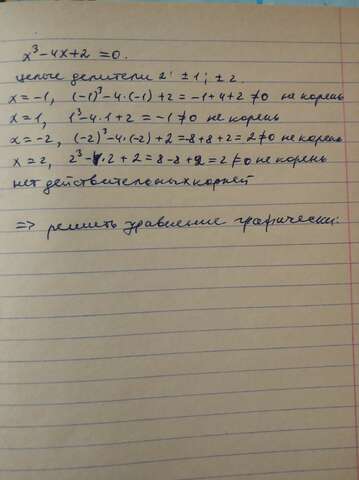 x³-4x+2=0.
целые делители 2: ±1; ±2.
x=-1, (-1)³-4·(-1)+2=-1+4+2≠0 не корень
x=1, 1³-4·1+2=-1≠0 не корень
x=-2, (-2)³-4·(-2)+2=-8+8+2=2≠0 не корень
x=2, 2³-4·2+2=8-8+2=2≠0 не корень
нет действительных корней
=> решить уравнение графически.